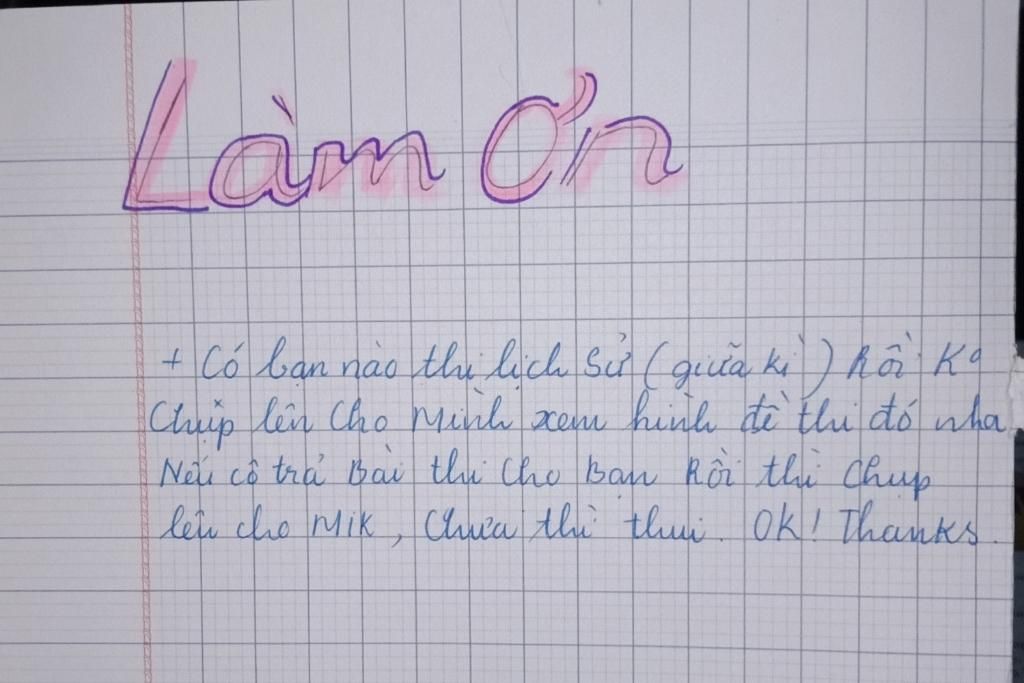 Làm Ơn
+ Có bạn nào thi lịch Sử (giữa kì) Rồi Ko
Chụp lên Cho Mình xem hình đề thi đó nha
Nếu cô trả Bài thi Cho Bạn Rồi thì Chụp
lên cho Mik, Chưa thì thui. OK! Thanks.